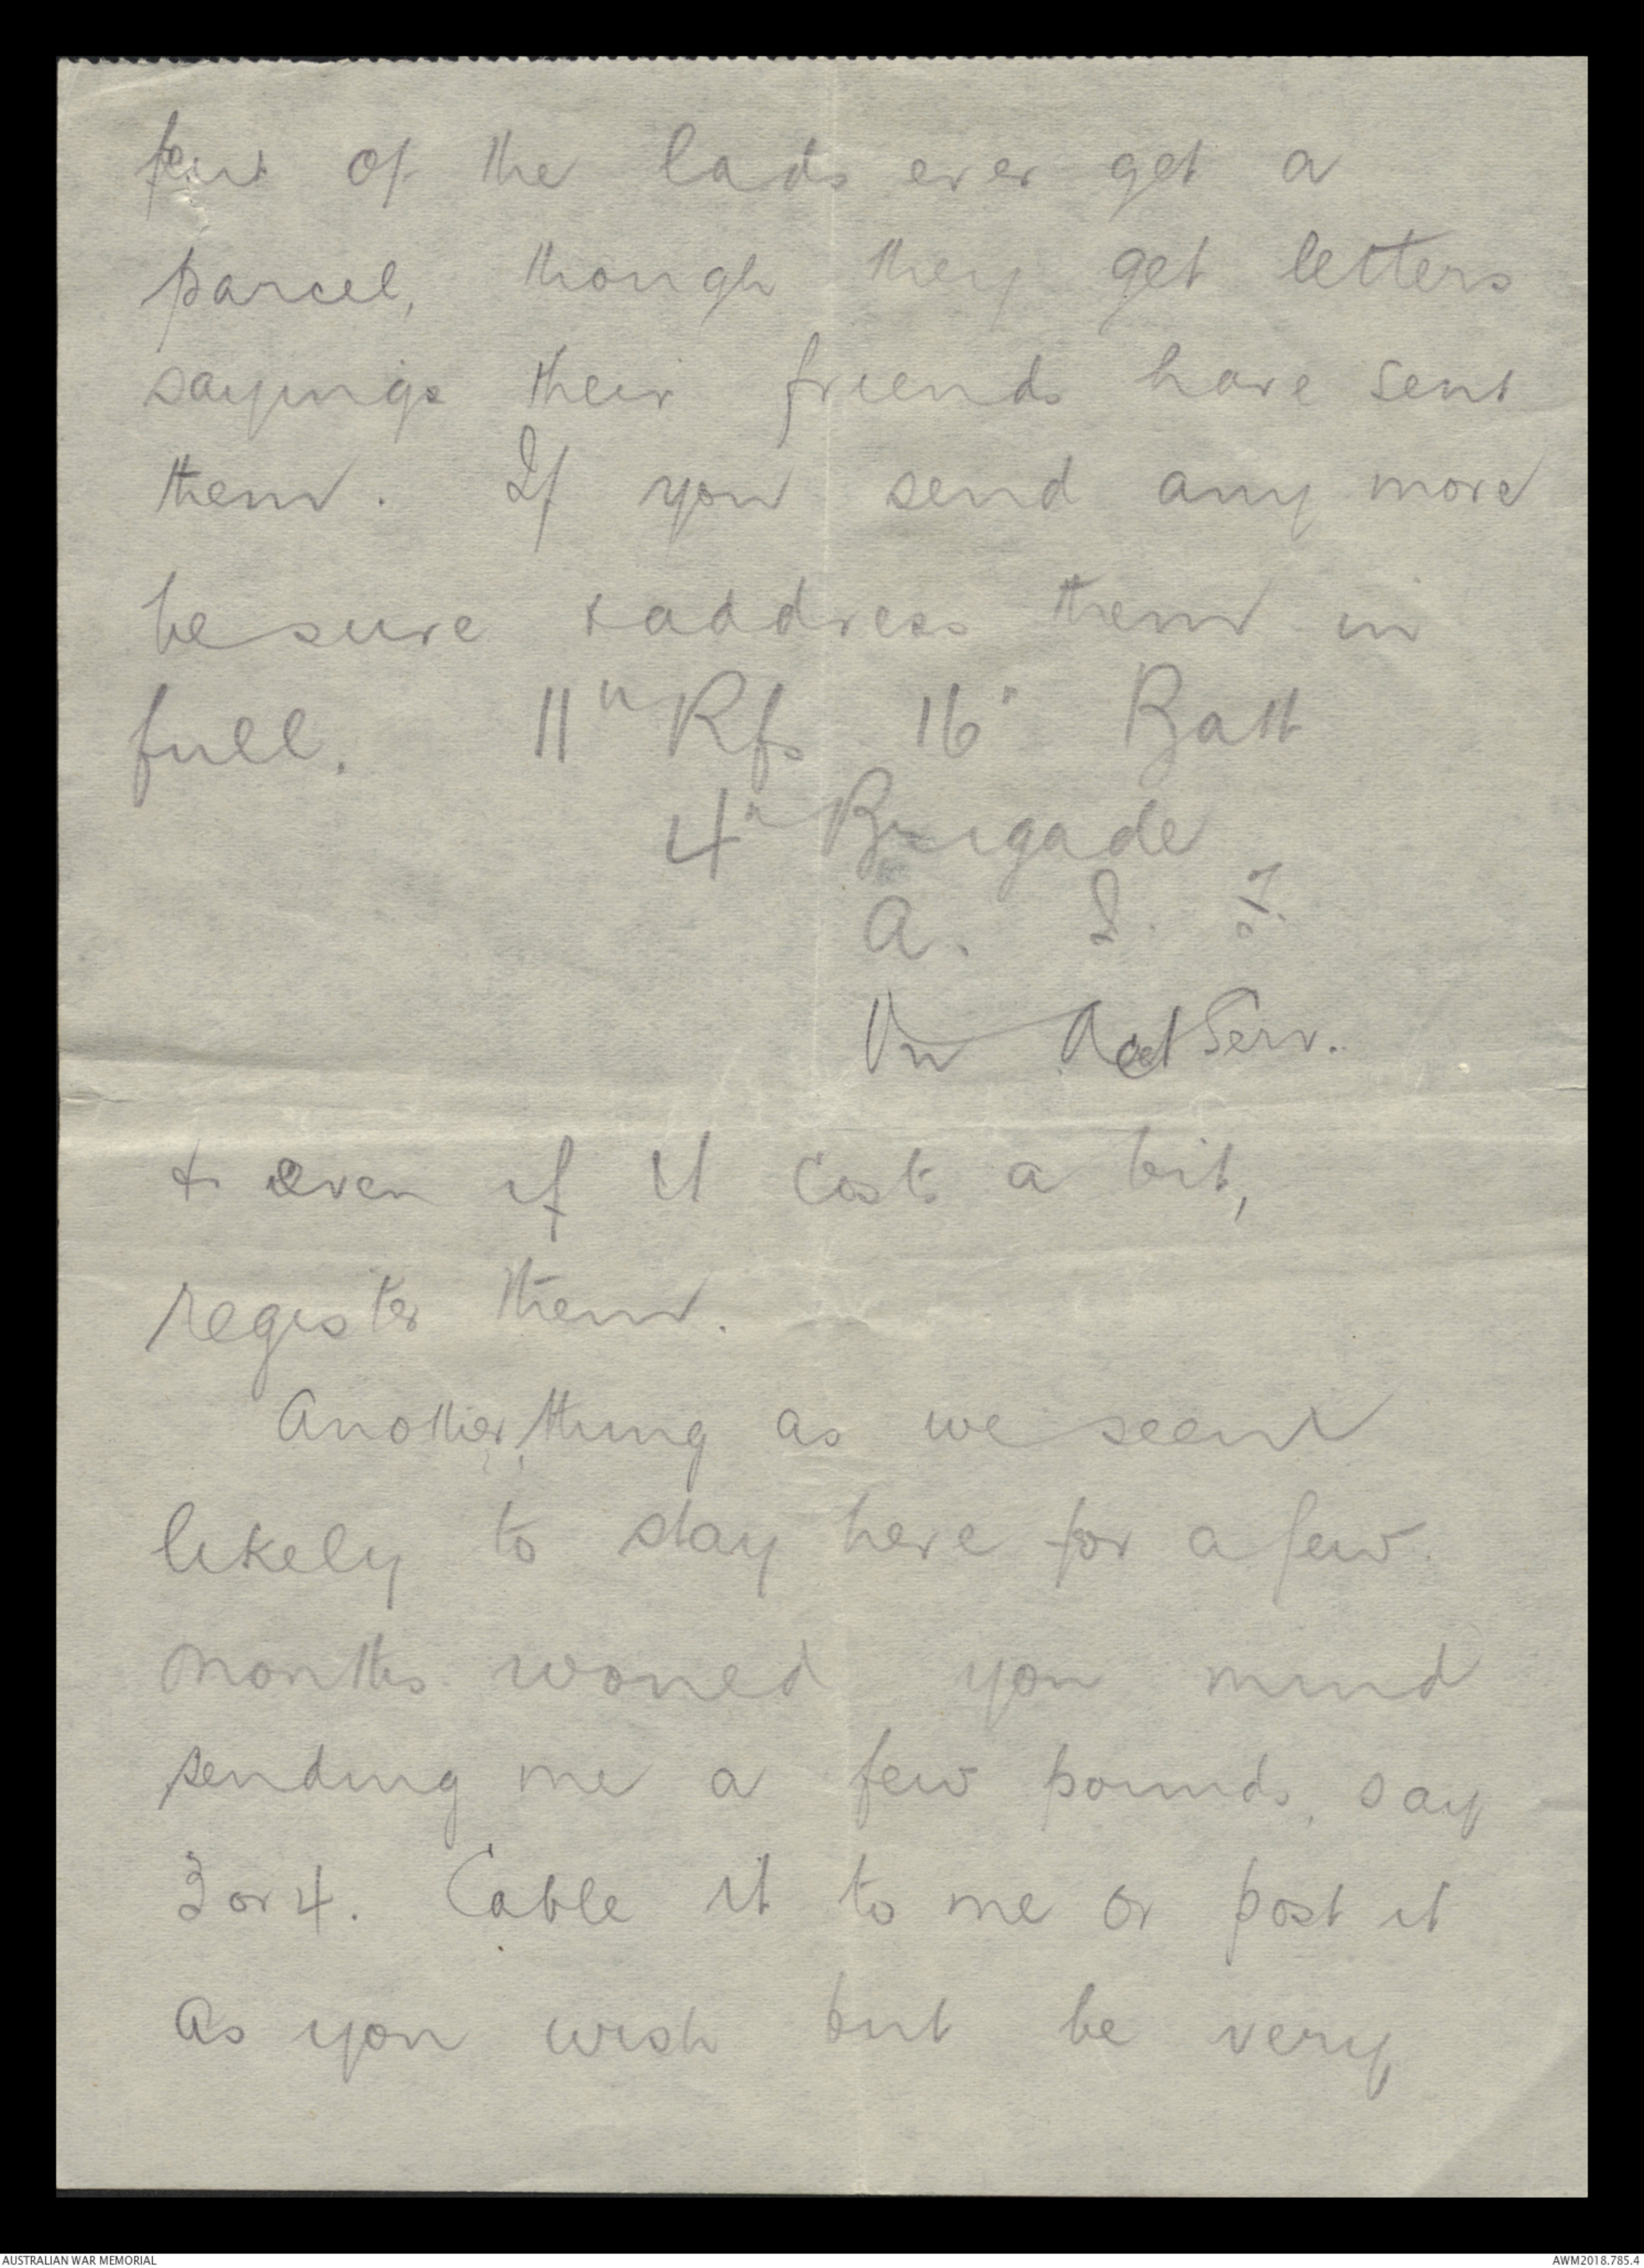 few of the lads ever get a
parcel, though they get letters
sayings their friends have sent
them. If you send any more
be sure & address them in
full. 11th Rfs 16th Batt
4th Brigade
A. I. F.
On Act Serv.
& even if it costs a bit,
register them.
Another thing as we seem
likely to stay here for a few
months would you mind
sending me a few pounds, say
3 or 4. Cable it to me or post it
as you wish but be very
AUSTRALIAN WAR MEMORIAL
AWM2018.785.4